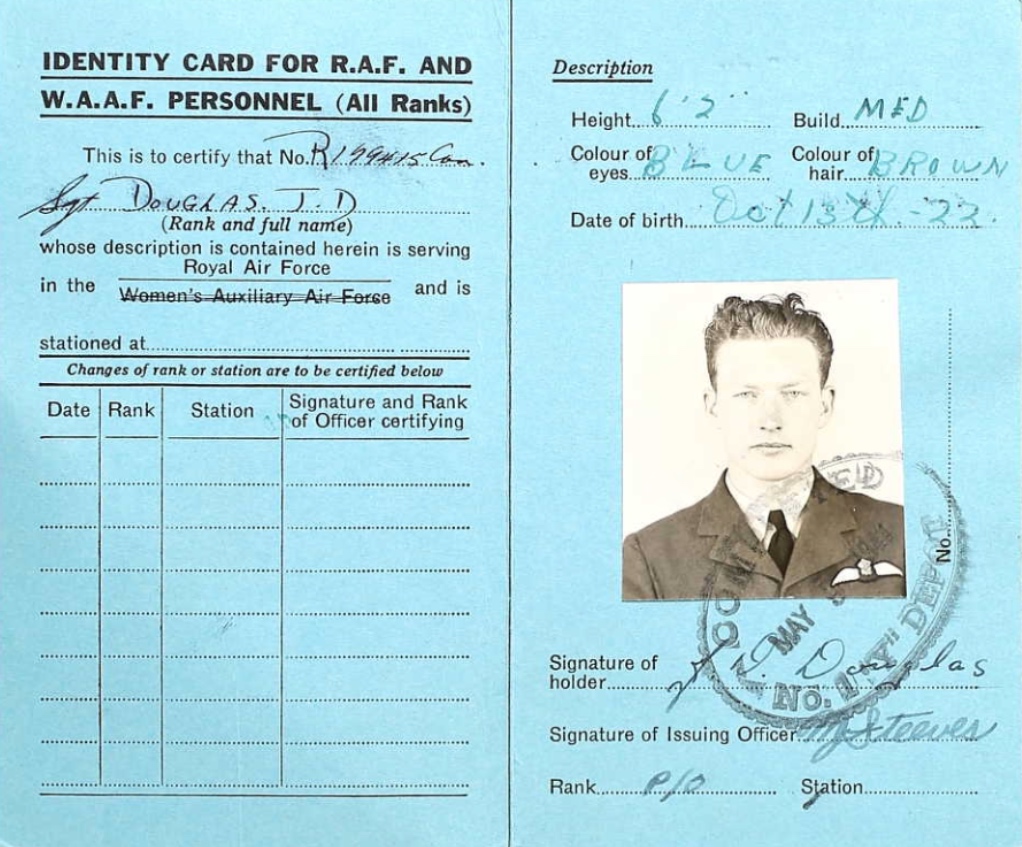 IDENTITY CARD FOR R.A.F. AND
W.A.A.F. PERSONNEL (All Ranks)
This is to certify that No. R199415 Can.
Sgt DOUGLAS. J. D
(Rank and full name)
whose description is contained herein is serving
in the Royal Air Force
Women's Auxiliary Air Force and is
stationed at
Changes of rank or station are to be certified below
Date Rank Station Signature and Rank
of Officer certifying
Description
Height 6'2" Build MED
Colour of eyes BLUE Colour of hair BROWN
Date of birth Oct 13th -22.
MAY
No. 1 "Y" DEPOT
No.
Signature of holder J. D. Douglas
Signature of Issuing Officer Steeves
Rank P/O Station